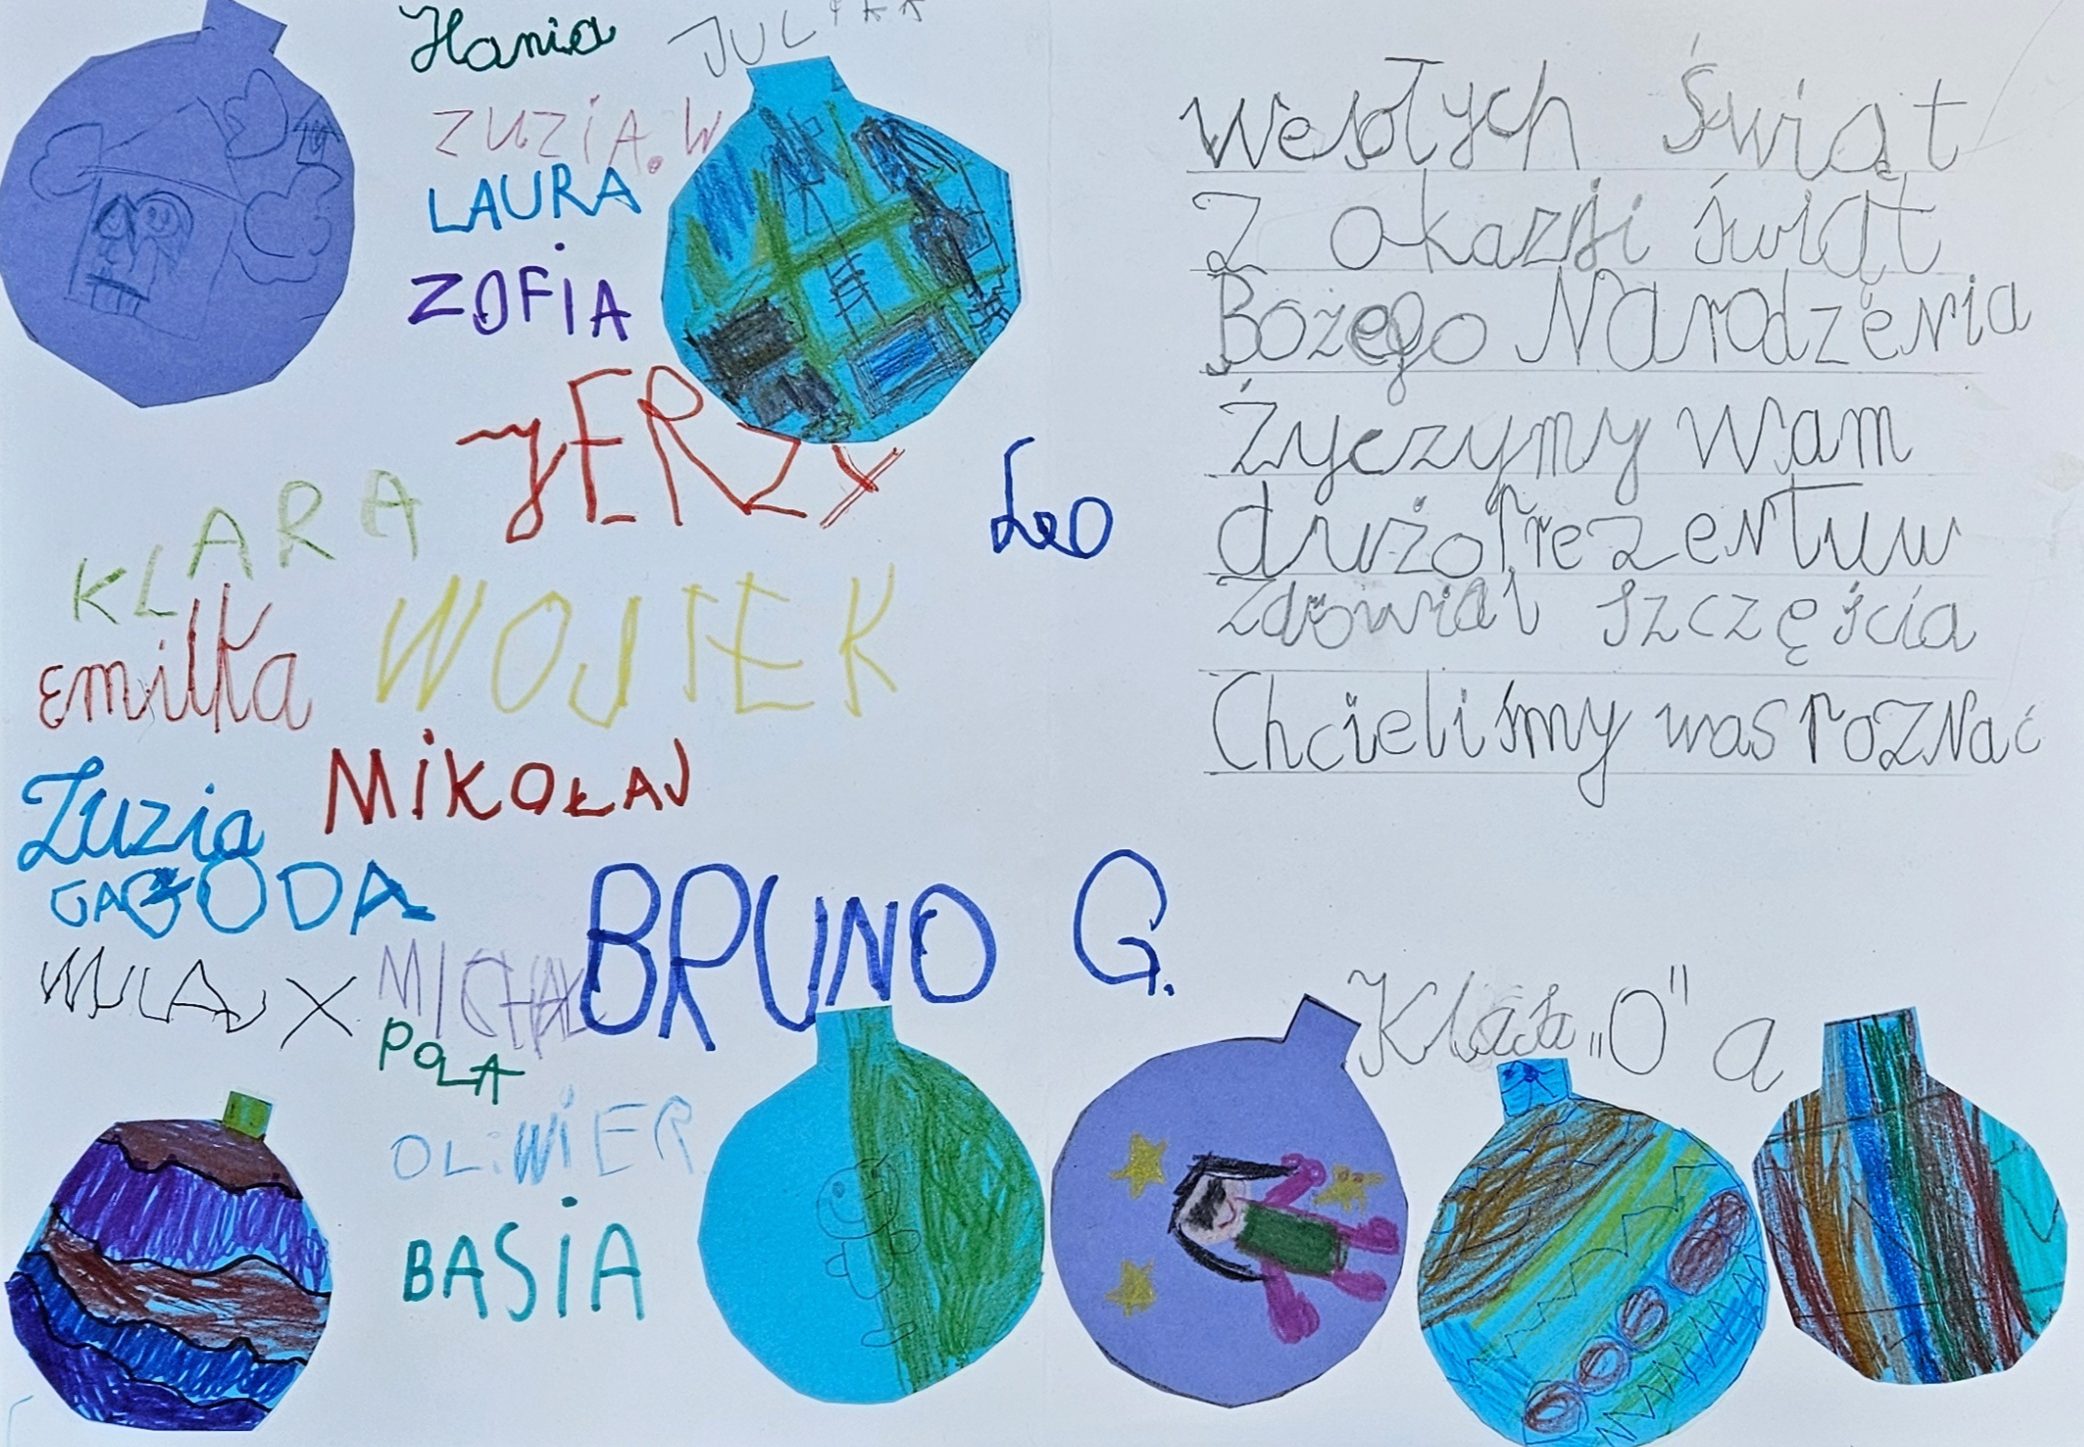 Hania
JULIKA
ZUZIA.W
LAURA
ZOFIA
JERZY
Leo
KLARA
Emilka
WOJTEK
MIKOŁAJ
Zuzia
JAGODA
MICHAŁ
BRUNO G.
POLA
OLIWIER
BASIA
Wesołych Świąt
Z okazji świąt
Bożego Narodzenia
Życzymy Wam
dużo Prezentuw
Zdrowia i szczęścia
Chcieliśmy was Poznać
Klasa „O" a